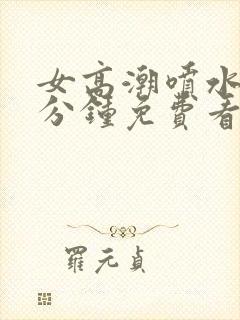 女高潮喷水
分鐘免費看
羅元貞